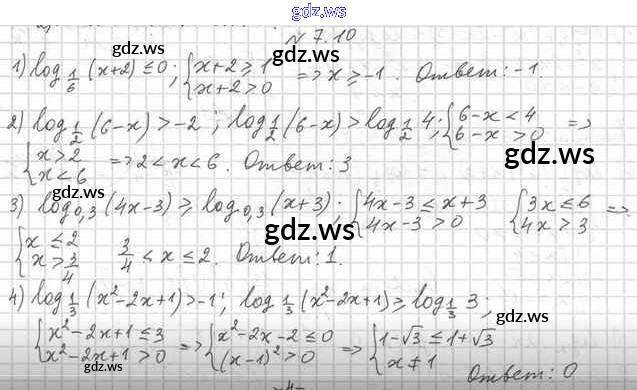 gdz.ws
gdz.ws
N 7.10
1) log_{1/6} (x+2) ≤ 0; { x+2 ≥ 1 { x+2 > 0 => x ≥ -1. Ответ: -1.
gdz.ws
2) log_{1/2} (6-x) > -2; log_{1/2} (6-x) > log_{1/2} 4; { 6-x < 4 { 6-x > 0 =>
gdz.ws
{ x > 2 { x < 6 => 2 < x < 6. Ответ: 3
gdz.ws
3) log_{0,3} (4x-3) ≥ log_{0,3} (x+3); { 4x-3 ≤ x+3 { 4x-3 > 0 { 3x ≤ 6 { 4x > 3 =>
gdz.ws
{ x ≤ 2 { x > 3/4 3/4 < x ≤ 2. Ответ: 1.
4) log_{1/3} (x²-2x+1) > -1; log_{1/3} (x²-2x+1) ≥ log_{1/3} 3;
{ x²-2x+1 ≤ 3 { x²-2x+1 > 0 => { x²-2x-2 ≤ 0 { (x-1)² > 0 => { 1-√3 ≤ 1+√3 { x ≠ 1
gdz.ws
Ответ: 0
-4-